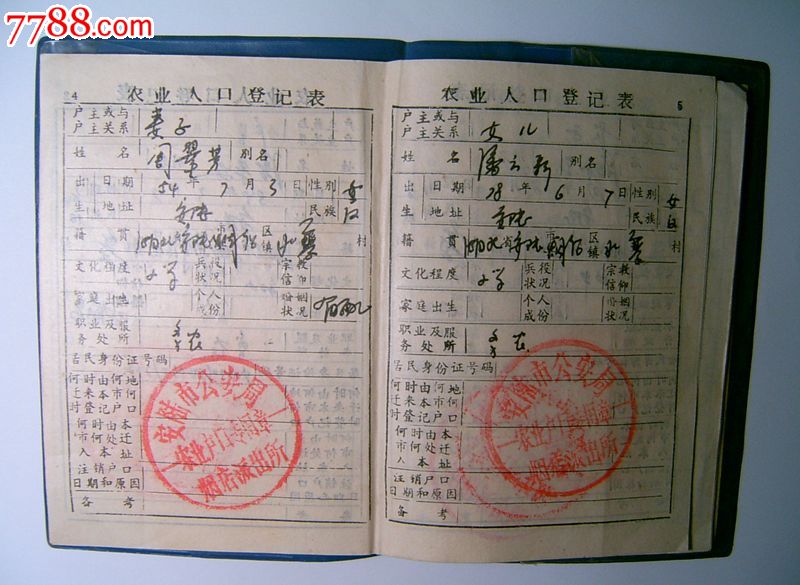 7788.com
4
农业人口登记表
户主或与
户主关系
妻子
姓名
周翠芳
别名
出生
日期
54年7月3日
性别
女
地址
安陆
民族
汉
籍贯
湖北省安陆市
区
镇
村
文化程度
小学
兵役
状况
宗教
信仰
家庭出生
个人
成份
婚姻
状况
有配
职业及服
务处所
务农
居民身份证号码
何时由何地
迁来本市何
时登记户口
何时由本
市何处迁
入本址
注销户口
日期和原因
备考
安陆市公安局
农业户口专用章
烟店派出所
5
农业人口登记表
户主或与
户主关系
女儿
姓名
别名
出生
日期
78年6月7日
性别
女
地址
安陆
民族
汉
籍贯
湖北省安陆市
区
镇
村
文化程度
小学
兵役
状况
宗教
信仰
家庭出生
个人
成份
婚姻
状况
职业及服
务处所
务农
居民身份证号码
何时由何地
迁来本市何
时登记户口
何时由本
市何处迁
入本址
注销户口
日期和原因
备考
安陆市公安局
农业户口专用章
烟店派出所